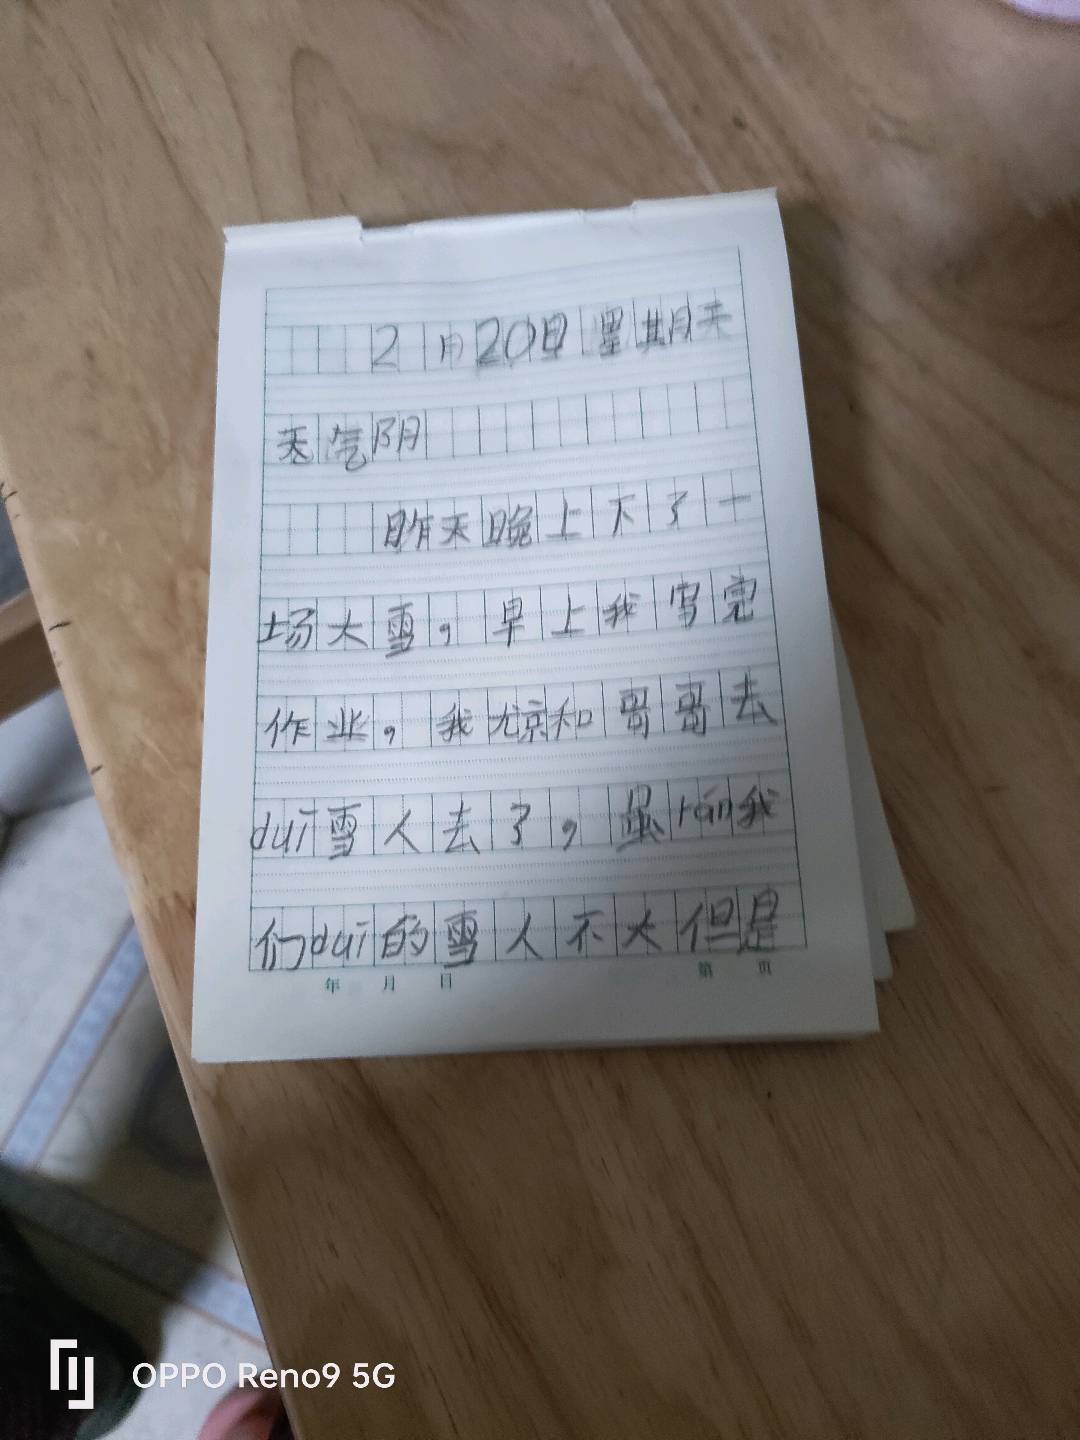 2月20日星期天
天气阴
昨天晚上下了一
场大雪，早上我写完
作业，我就和哥哥去
duī雪人去了，虽rán我
们duī的雪人不大但是
年 月 日 第 页
OPPO Reno9 5G